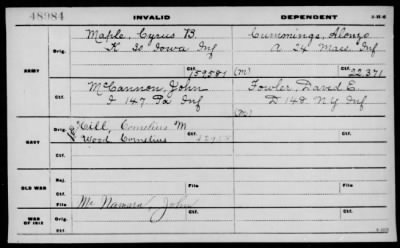 48984 INVALID DEPENDENT 3-1546
Orig. Maple, Cyrus B Cummings, Alonzo
K 30 Iowa Inf A 24 Mass Inf
ARMY Ctf. 159581 (M) Ctf. 22.371
Orig. McCannon, John Fowler, David E.
I 147 Pa Inf D 148 N.Y. Inf
Ctf. (M)
Orig. Hill, Cornelius M
NAVY Wood Cornelius
Ctf.
Rej.
OLD WAR File File
Ctf.
WAR OF 1812 Orig. McNamara, John File File
Ctf.